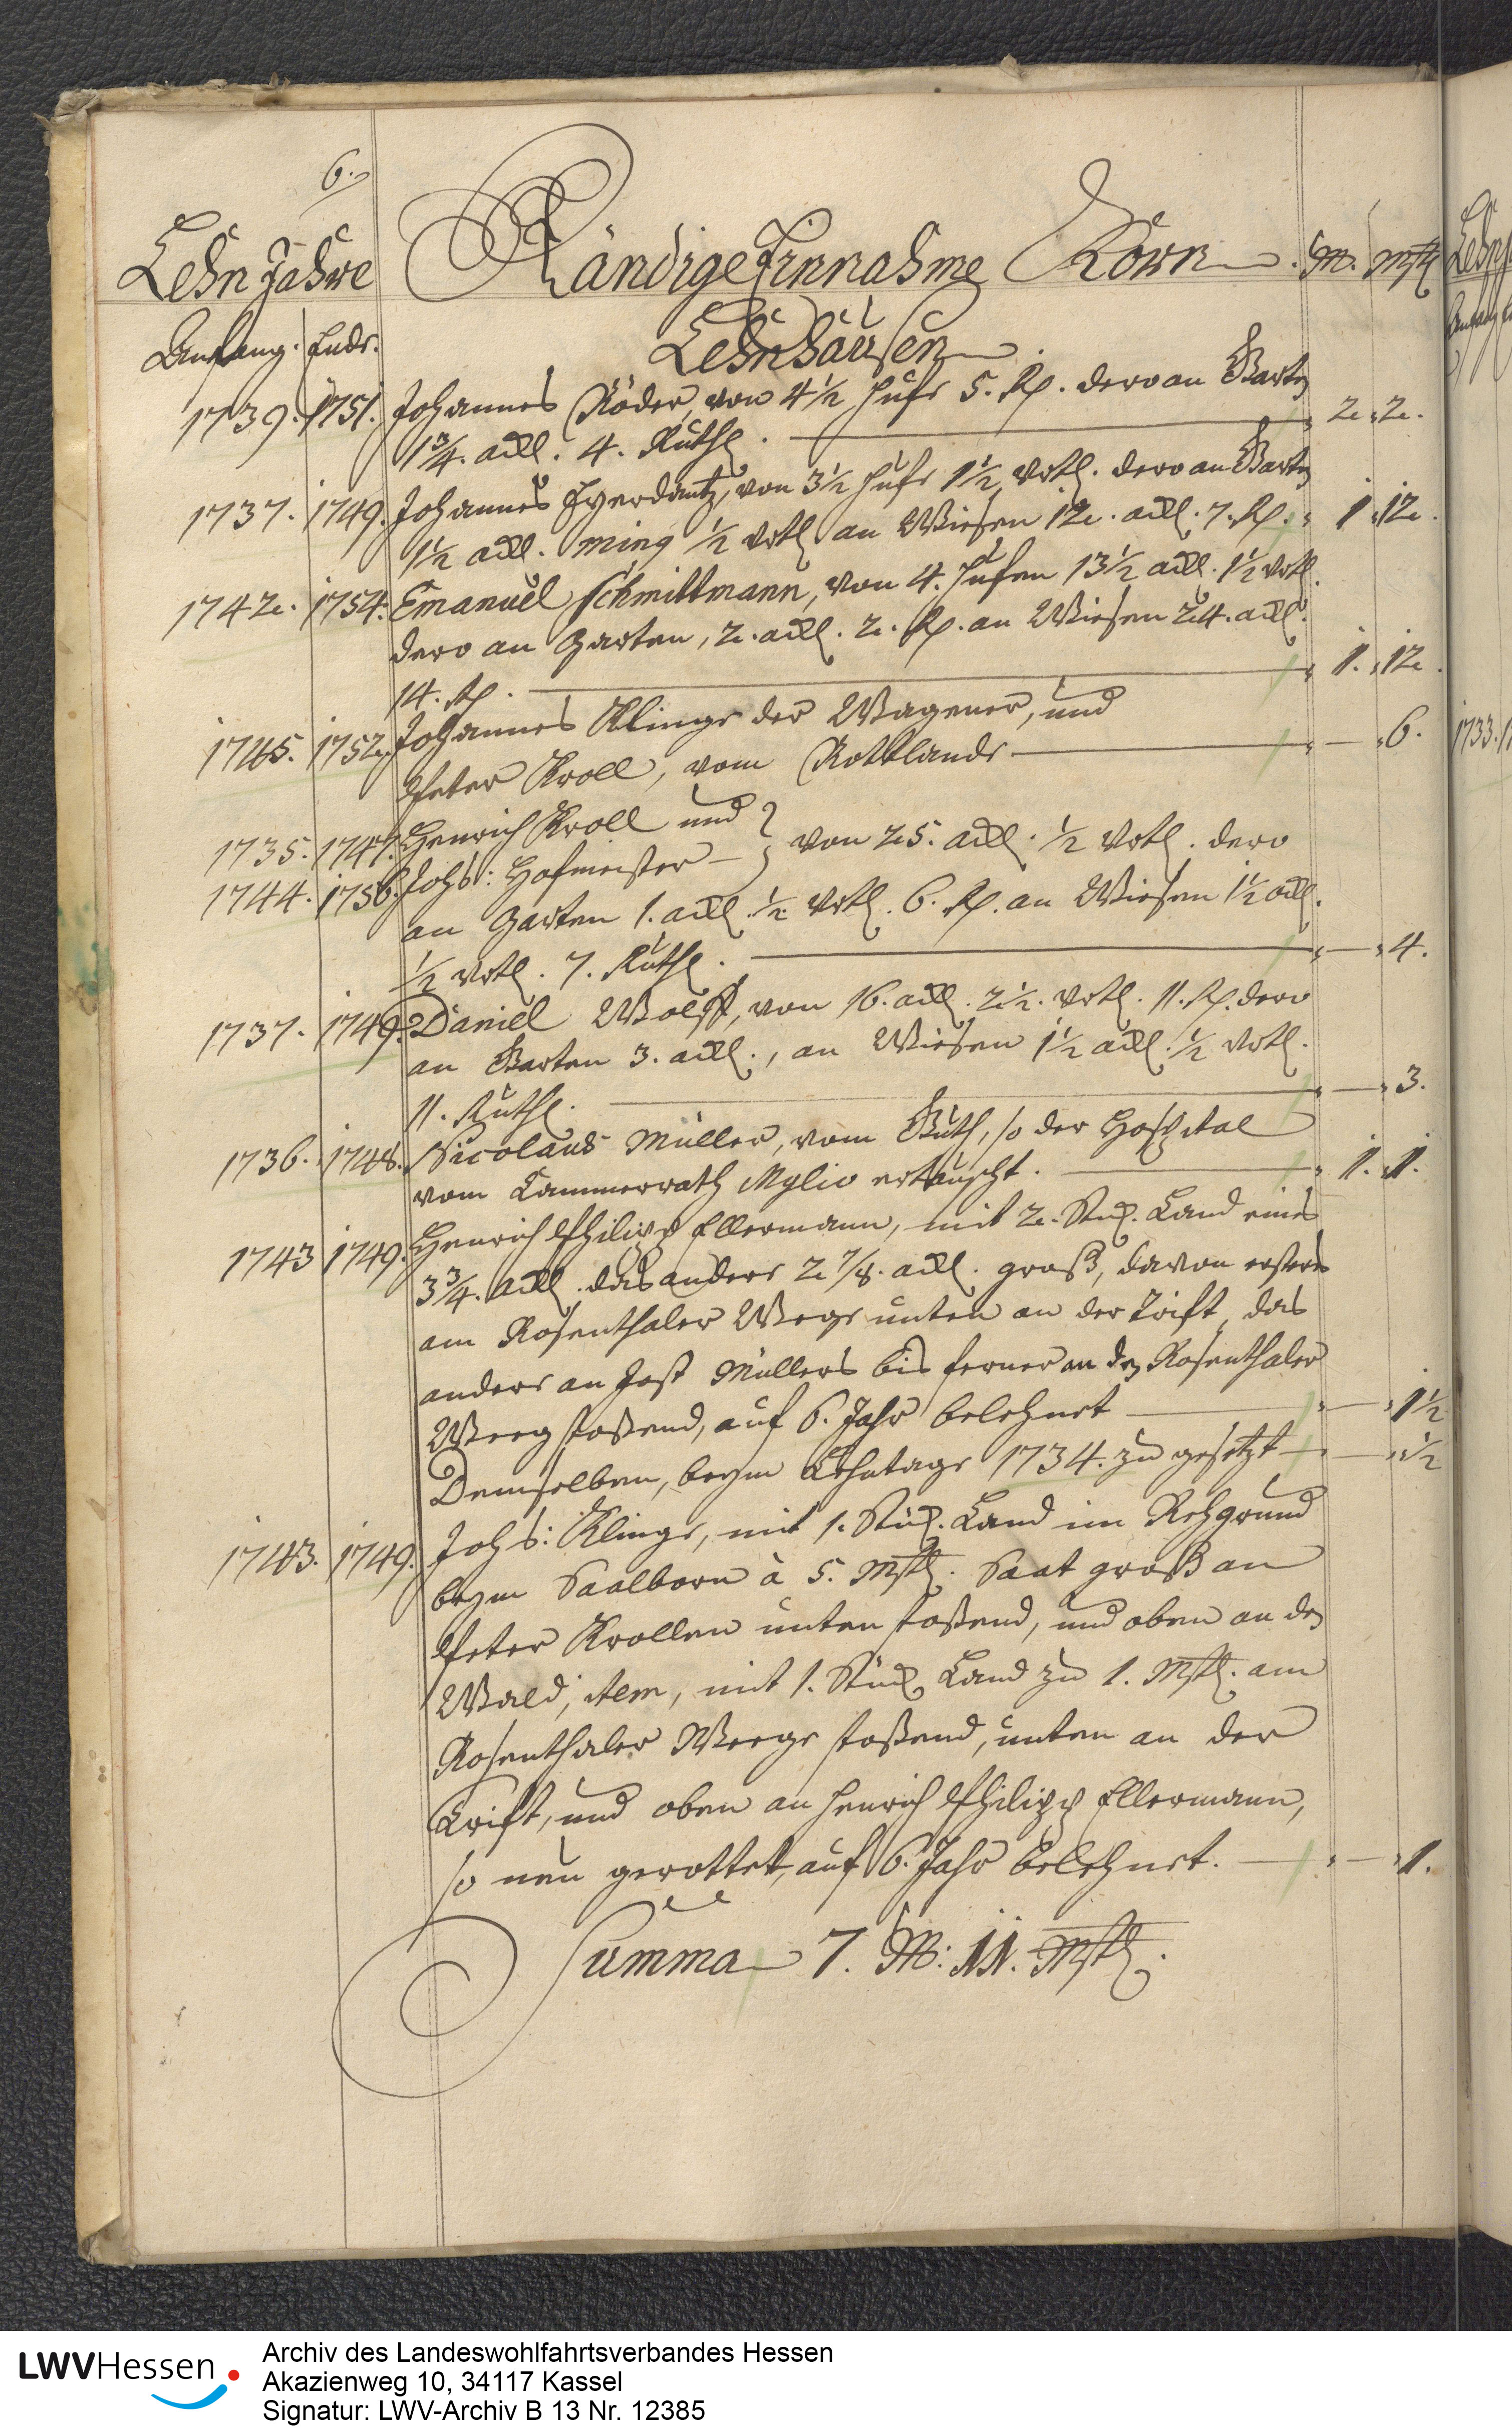 6.
Lehn Jahre Ständige Einnahme Korn. M. Mstl
Anfang. Ende. Lehnhausen.
1739. 1751. Johannes Röder, von 4½ Hufe 5. R. dero an Garten 2. 2.
1¾. ackl. 4. Ruth.
1737. 1749. Johannes von 3½ Hufe 1½ Vrtl. dero an Garten
1½ ackl. ming ½ Vrtl an Wiesen 12. ackl. 7. R. 1. 12.
1742. 1754. Emanuel Schmittmann, von 4. Hufen 13½ ackl. 1½ Vrtl.
dero an Garten, 2. ackl. 2. R. an Wiesen 24. ackl.
14. R. 1. 12
1745. 1752. Johannes Klinge der Wagener, und
Peter Kroll, vom Rottlande — 6.
1735. 1747. Henrich Kroll und
1744. 1756. Johs: Hofmeister — von 25. ackl. ½ Vrtl. dero
an Garten 1. ackl. ½ Vrtl. 6. R. an Wiesen 1½ ackl.
½ Vrtl. 7. Ruth. — 4.
1737. 1749. Daniel Wolff, von 16. ackl. 2½. Vrtl. 11. R. dero
an Garten 3. ackl., an Wiesen 1½ ackl. ½ Vrtl.
11. Ruth. — 3.
1736. 1748. Nicolaus Müller, vom Guth, so der Hospital
vom Cammerrath Mylio ertauscht. 1. 1.
1743 1749. Henrich Philipp Ellermann, mit 2. Stück. Land eines
3¾. ackl. das andere 2⅞. ackl. groß, davon erstere
am Rosenthaler Wege unten an der Trift, das
andere an Jost Müllers bis ferner an den Rosenthaler
Weeg stoßend, auf 6. Jahr belehnet — 1½
Demselben, beym Lehntage 1734. zu gesetzt — ½
1743. 1749. Johs: Klinge, mit 1. Stück. Land im Rehgrund
beym Saalborn à 5. Mstl. Saat groß an
Peter Krollen unten stoßend, und oben an den
Wald, item, mit 1. Stück Land zu 1. Mstl. am
Rosenthaler Weege stoßend, unten an der
Trift, und oben an Henrich Philipp Ellermann,
so neu gerottet, auf 6. Jahr belehnet. — 1.
Summa 7. M: 11. Mstl.
1733.
LWVHessen
Archiv des Landeswohlfahrtsverbandes Hessen
Akazienweg 10, 34117 Kassel
Signatur: LWV-Archiv B 13 Nr. 12385